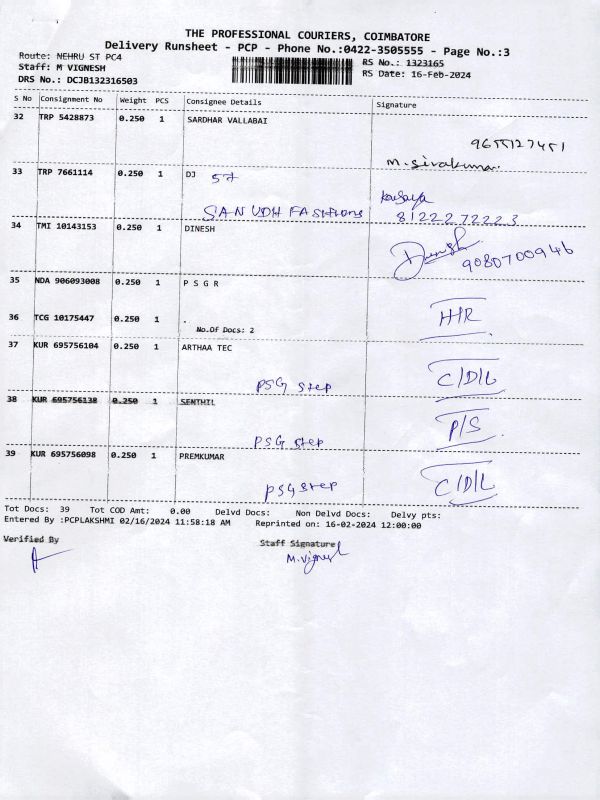 THE PROFESSIONAL COURIERS, COIMBATORE
Delivery Runsheet - PCP - Phone No.:0422-3505555 - Page No.:3
Route: NEHRU ST PC4
RS No.: 1323165
Staff: M VIGNESH
RS Date: 16-Feb-2024
DRS No.: DCJB132316503
S No Consignment No Weight PCS Consignee Details Signature
32 TRP 5428873 0.250 1 SARDHAR VALLABAI
9655127451
M. Sivakumar.
33 TRP 7661114 0.250 1 DJ 57
SANUDH FASHIONS
8122272223
34 TMI 10143153 0.250 1 DINESH
Dinesh
9080700946
35 NDA 906093008 0.250 1 P S G R
36 TCG 10175447 0.250 1 .
No.Of Docs: 2
H/R
37 KUR 695756104 0.250 1 ARTHAA TEC
PSG step
C/D/L
38 KUR 695756138 0.250 1 SENTHIL
PSG step
P/S
39 KUR 695756098 0.250 1 PREMKUMAR
PSG step
C/D/L
Tot Docs: 39 Tot COD Amt: 0.00 Delvd Docs: Non Delvd Docs: Delvy pts:
Entered By :PCPLAKSHMI 02/16/2024 11:58:18 AM Reprinted on: 16-02-2024 12:00:00
Verified By
Staff Signature
M. Vignesh